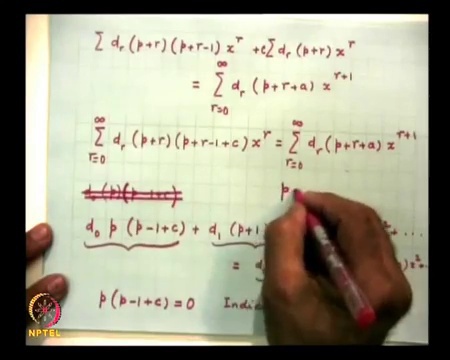 ∑ d_r (p+r)(p+r-1) x^r + c∑ d_r (p+r) x^r
= ∑_{r=0}^{∞} d_r (p+r+a) x^{r+1}
∑_{r=0}^{∞} d_r (p+r)(p+r-1+c) x^r = ∑_{r=0}^{∞} d_r (p+r+a) x^{r+1}
p
d_0 p (p-1+c) + d_1 (p+1 x^2 + ...
= d ) x^2 + ..
p(p-1+c) = 0 Indic
NPTEL